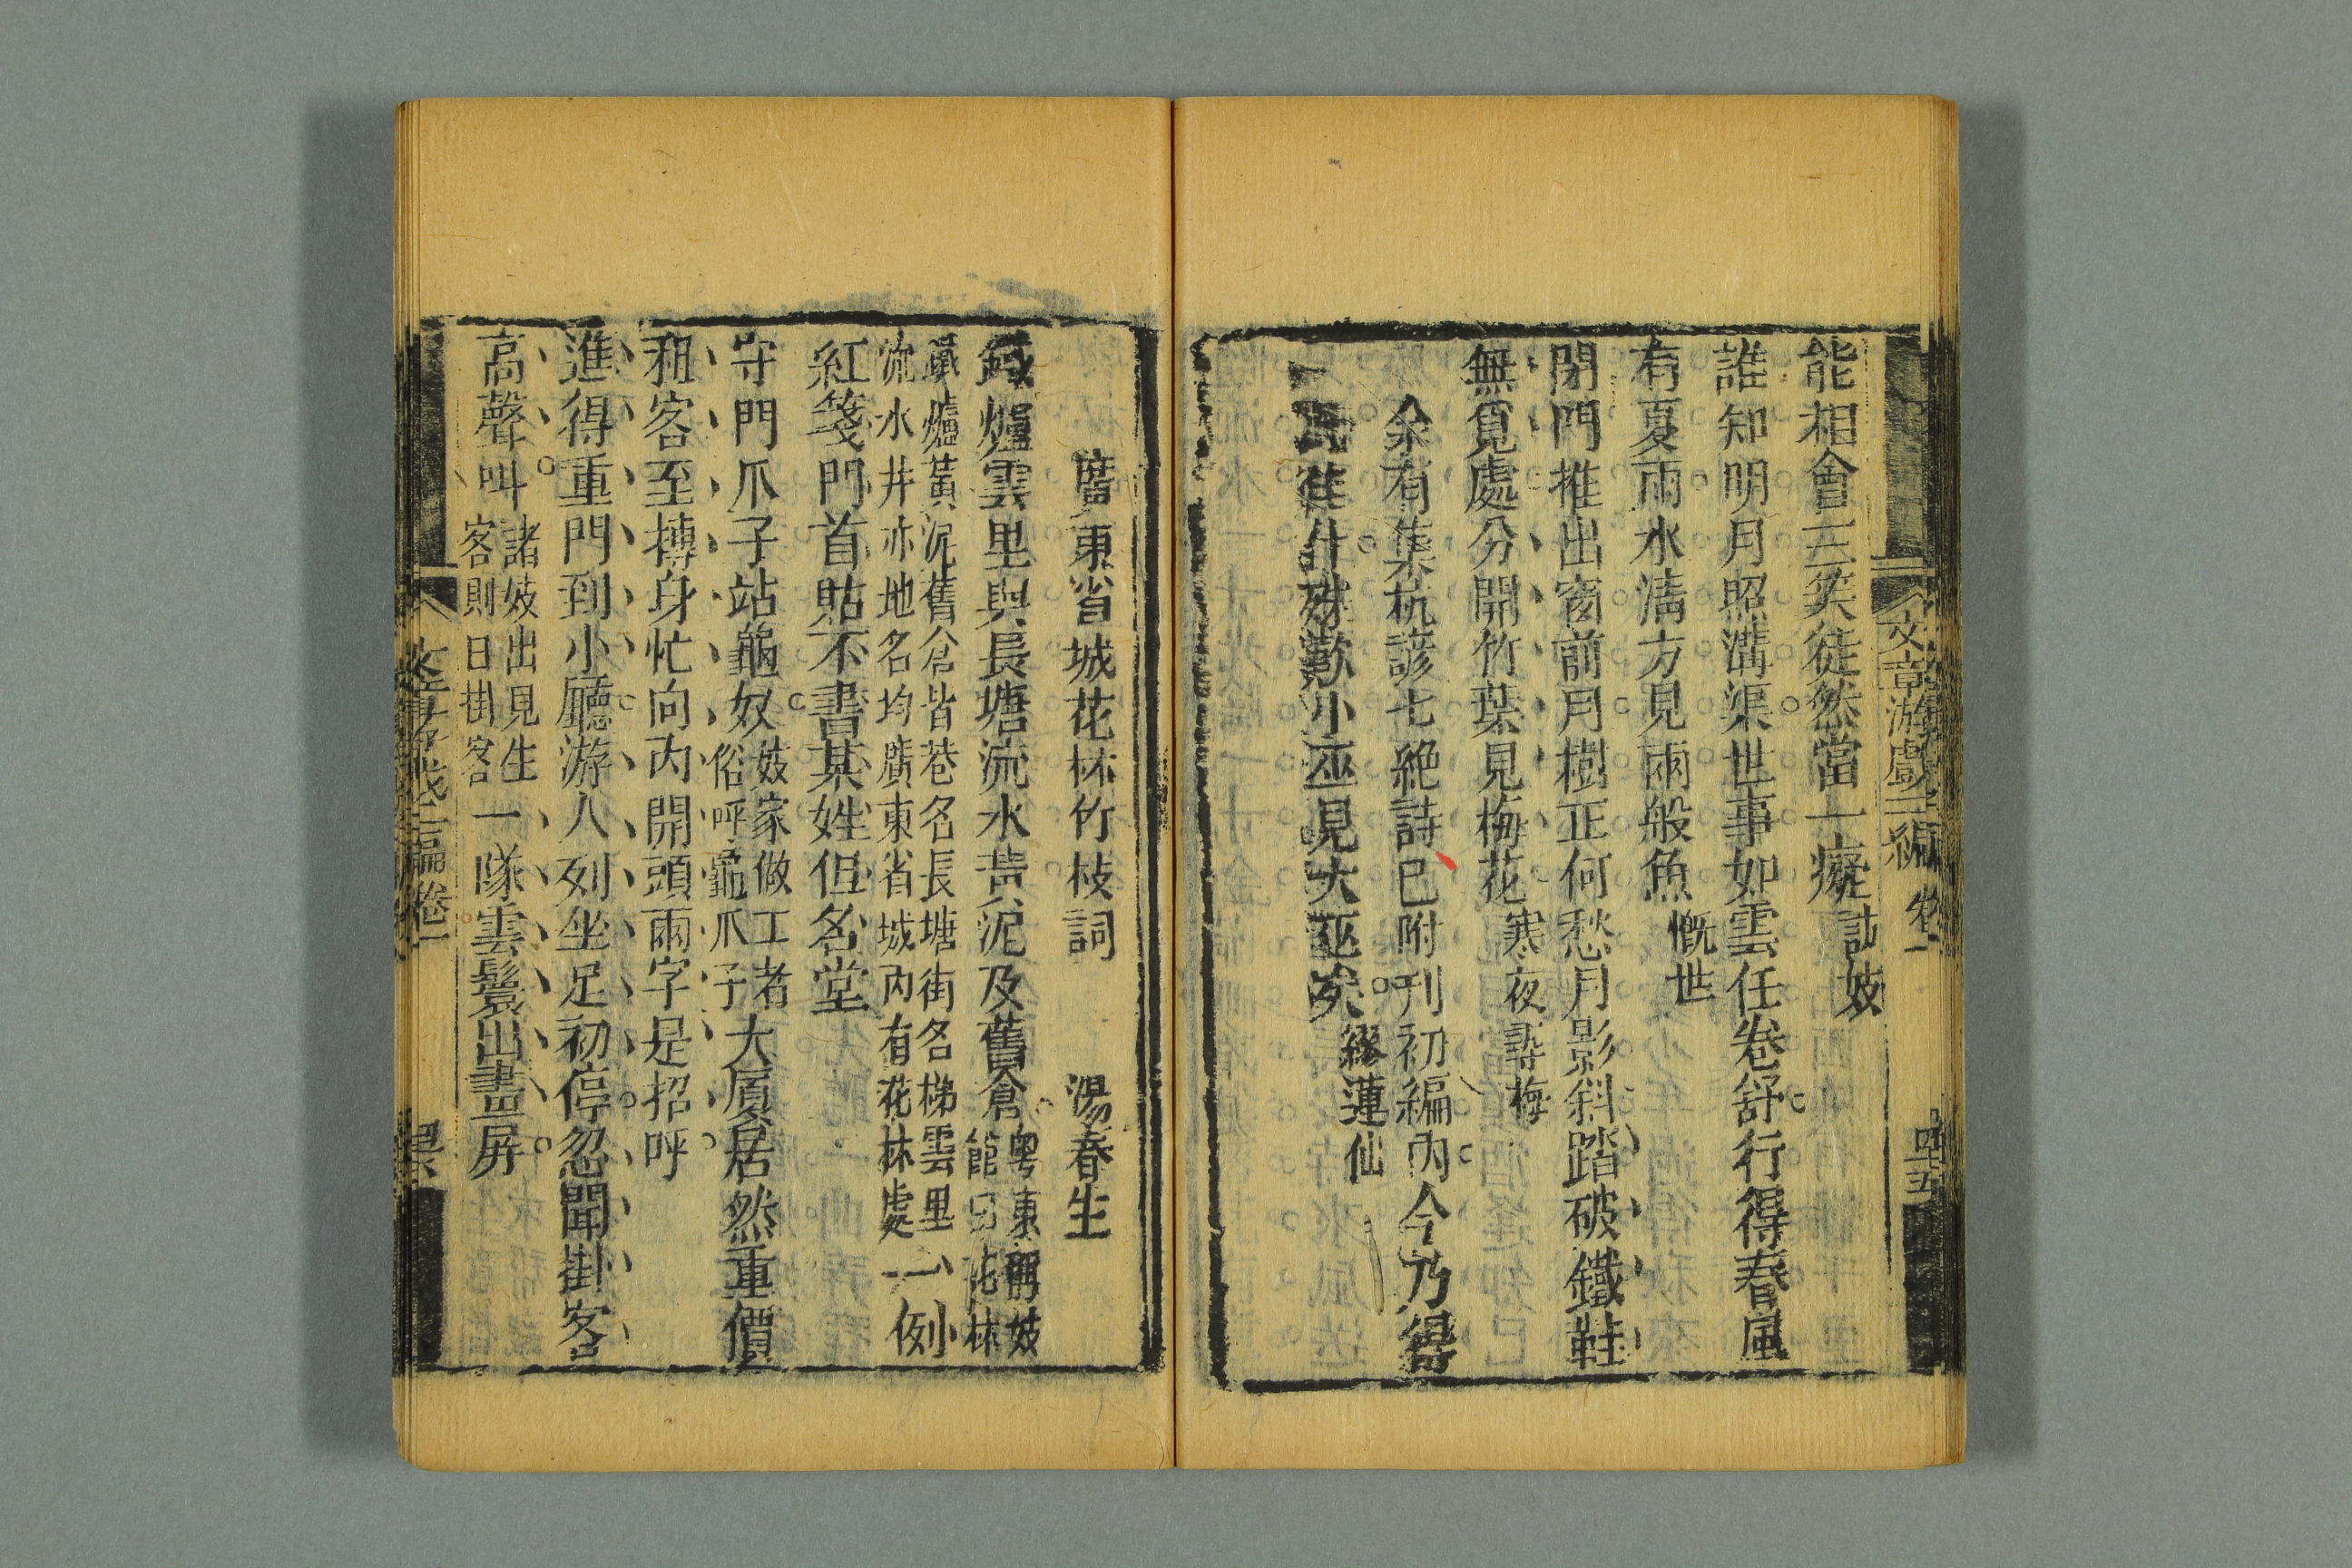 文章游戲三編 卷一 四十五
能相會三笑徒然當一癡訪妓
誰知明月照溝渠世事如雲任卷舒行得春風
有夏雨水清方見兩般魚慨世
閉門推出窗前月樹正何愁月影斜踏破鐵鞋
無覓處分開竹葉見梅花寒夜尋梅
余有集杭諺七絕詩已附刊初編內今乃得
佳什殊歎小巫見大巫矣繆蓮仙
廣東省城花林竹枝詞 湯春生
鐵爐雲里與長塘流水黃泥及舊倉粵東稱妓
館曰花林
鐵爐黃泥舊倉皆巷名長塘街名梯雲里
流水井亦地名均廣東省城內有花林處
一例
紅箋門首貼不書某姓但名堂
守門爪子站龜奴妓家做工者
俗呼龜爪子
大廈居然重價
租客至摶身忙向內開頭兩字是招呼
進得重門到小廳游人列坐足初停忽聞掛客
高聲叫諸妓出見生
客則曰掛客
一隊雲鬟出畫屏
文章游戲三編 卷一